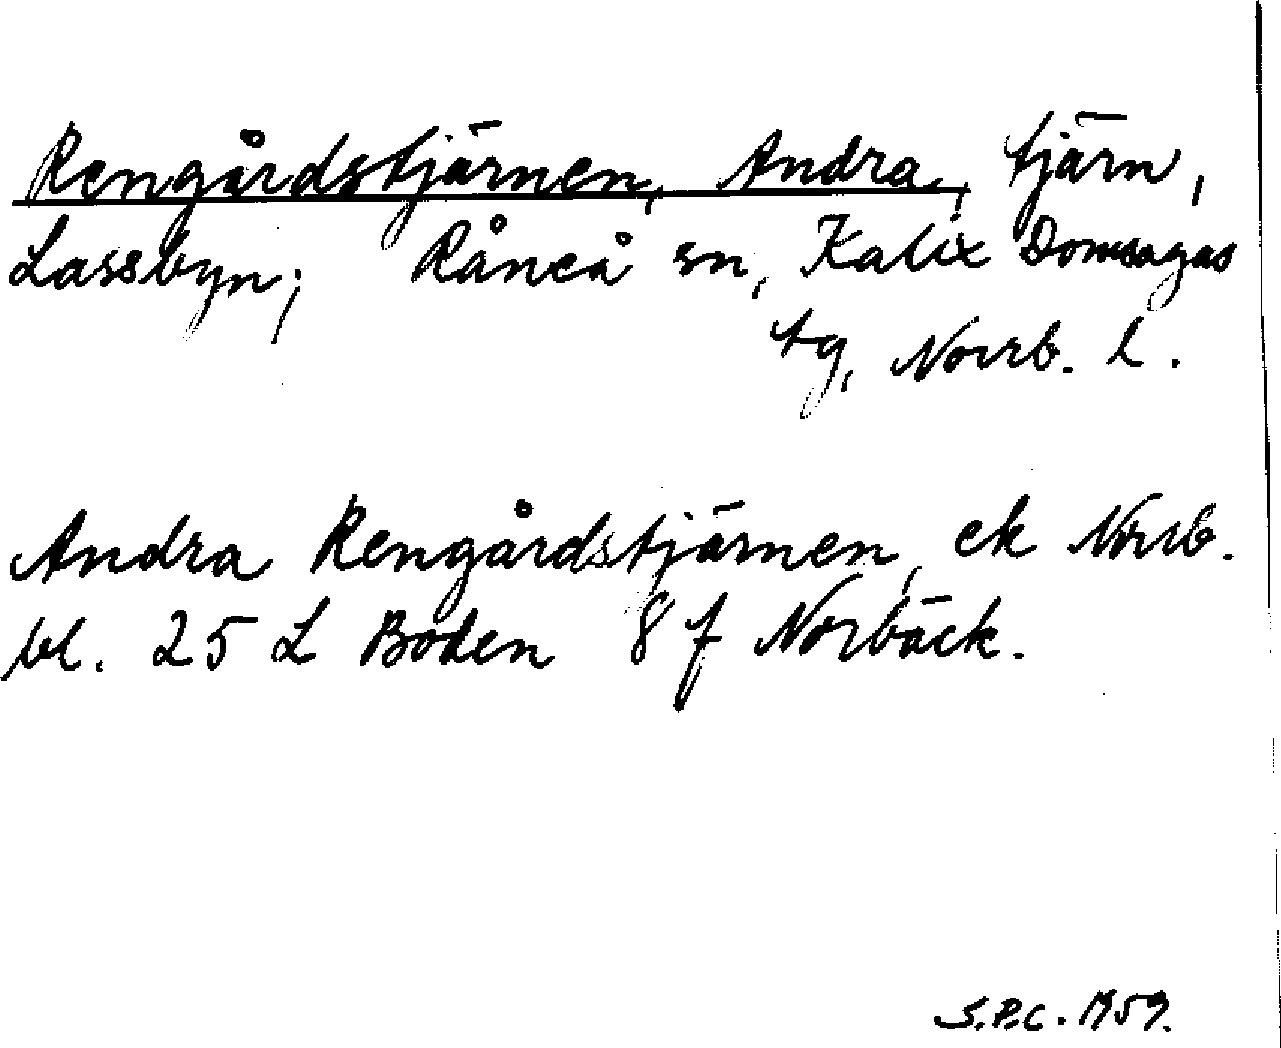 Rengårdstjärnen, Andra, tjärn,
Lassbyn; Råneå sn, Kalix Domsagas
tg, Norrb. l.
Andra Rengårdstjärnen, ek Norrb.
bl. 25 L Boden 8 f Norbäck.
S.P.C. 1959.